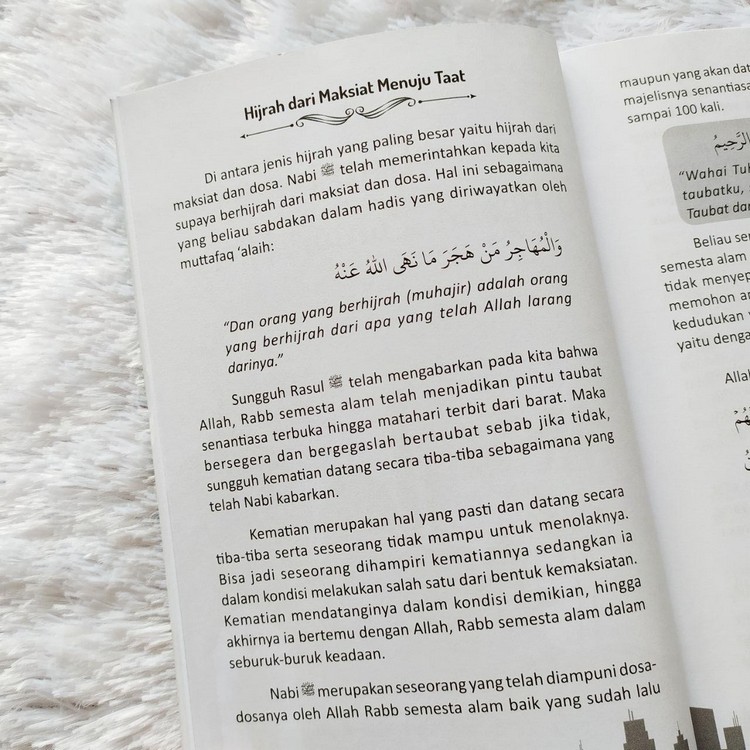 Hijrah dari Maksiat Menuju Taat
Di antara jenis hijrah yang paling besar yaitu hijrah dari
maksiat dan dosa. Nabi ﷺ telah memerintahkan kepada kita
supaya berhijrah dari maksiat dan dosa. Hal ini sebagaimana
yang beliau sabdakan dalam hadis yang diriwayatkan oleh
muttafaq 'alaih:
وَالْمُهَاجِرُ مَنْ هَجَرَ مَا نَهَى اللهُ عَنْهُ
"Dan orang yang berhijrah (muhajir) adalah orang
yang berhijrah dari apa yang telah Allah larang
darinya."
Sungguh Rasul ﷺ telah mengabarkan pada kita bahwa
Allah, Rabb semesta alam telah menjadikan pintu taubat
senantiasa terbuka hingga matahari terbit dari barat. Maka
bersegera dan bergegaslah bertaubat sebab jika tidak,
sungguh kematian datang secara tiba-tiba sebagaimana yang
telah Nabi kabarkan.
Kematian merupakan hal yang pasti dan datang secara
tiba-tiba serta seseorang tidak mampu untuk menolaknya.
Bisa jadi seseorang dihampiri kematiannya sedangkan ia
dalam kondisi melakukan salah satu dari bentuk kemaksiatan.
Kematian mendatanginya dalam kondisi demikian, hingga
akhirnya ia bertemu dengan Allah, Rabb semesta alam dalam
seburuk-buruk keadaan.
Nabi ﷺ merupakan seseorang yang telah diampuni dosa-
dosanya oleh Allah Rabb semesta alam baik yang sudah lalu
maupun yang akan dat
majelisnya senantiasa
sampai 100 kali.
الرَّحِيمُ
"Wahai Tuh
taubatku,
Taubat dan
Beliau se
semesta alam
tidak menyep
memohon a
kedudukan
yaitu denga
Alla